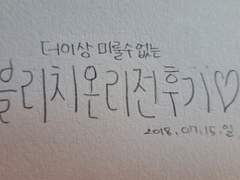 더이상 미룰수없는
블리치온리전후기♡
2018.07.15.일